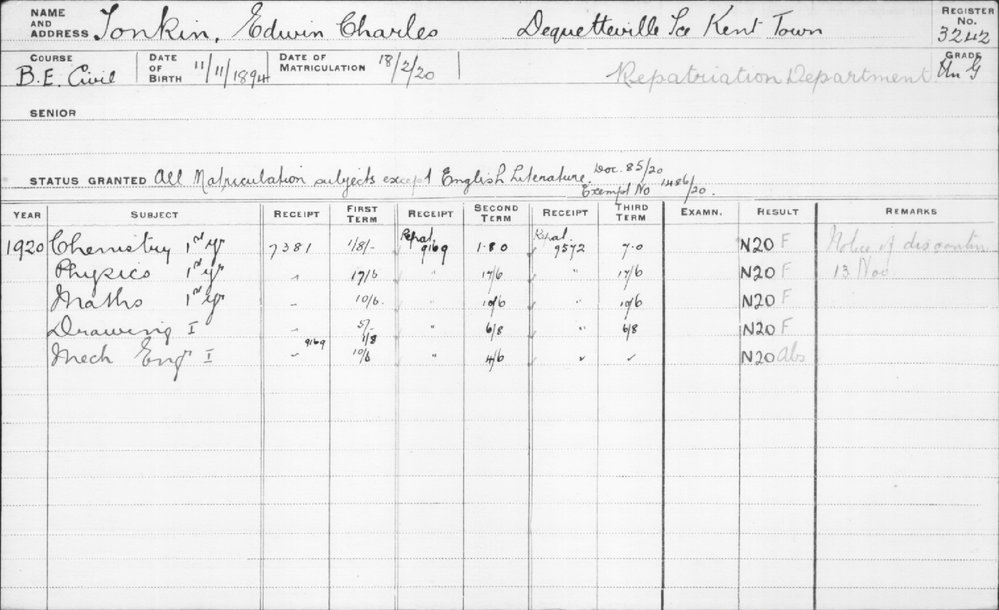 NAME AND ADDRESS Tonkin, Edwin Charles Dequetteville Tce Kent Town REGISTER No. 3242
COURSE B.E. Civil DATE OF BIRTH 11/11/1894 DATE OF MATRICULATION 18/2/20 Repatriation Department GRADE Un G
SENIOR
STATUS GRANTED All Matriculation subjects except English Literature. Doc. 85/20
Exempt No 1486/20.
YEAR SUBJECT RECEIPT FIRST TERM RECEIPT SECOND TERM RECEIPT THIRD TERM EXAMN. RESULT REMARKS
1920 Chemistry 1st yr 7381 1/8/- Repat. 9169 1.8.0 Repat. 9572 7.0 N20 F Notice of discontin
Physics 1st yr " 17/6 " 17/6 " 17/6 N20 F 13 Nov
Maths 1st yr " 10/6 " 10/6 " 10/6 N20 F
Drawing I " 5/- 1/8 " 6/8 " 6/8 N20 F
Mech Eng I 9169 " 10/6 " 4/6 " N20 Abs